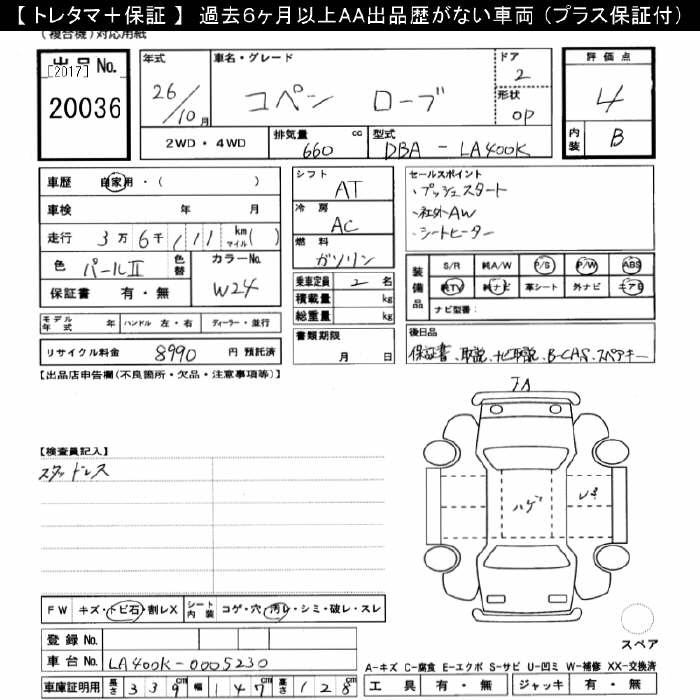 【 トレタマ＋保証 】 過去６ヶ月以上ＡＡ出品歴がない車両（プラス保証付）
(複合機)対応用紙
出品 No.
[2017]
20036
年式
26/10月
車名・グレード
コペン ローブ
ドア
2
形状
OP
評価点
4
内装
B
2WD・4WD
排気量
660 cc
型式
DBA - LA400K
車歴 自家用・( )
車検 年 月
走行 3万6千111 km マイル( )
色 パールⅡ
色替
カラーNo.
W24
保証書 有・無
シフト
AT
冷房
AC
燃料
ガソリン
乗車定員 2 名
積載量 kg
総重量 kg
セールスポイント
・プッシュスタート
・社外AW
・シートヒーター
装備品
S/R 純A/W P/S P/W ABS
純TV 純ナビ 革シート 外ナビ エアB
ナビ型番:
モデル年式 年 ハンドル 左・右 ディーラー・並行
リサイクル料金 8990 円 預託済
書類期限
月 日
後日品
保証書、取説、ナビ取説、B-CAS、スペアキー
【出品店申告欄(不良箇所・欠品・注意事項等)】
【検査員記入】
スタッドレス
ハゲ
FW キズ・トビ石・割レX
シート内装 コゲ・穴・汚レ・シミ・破レ・スレ
登録 No.
車台 No. LA400K-0005230
車庫証明用 長さ 339cm 幅 147cm 高さ 128cm
スペア
A-キズ C-腐食 E-エクボ S-サビ U-凹ミ W-補修 XX-交換済
工具 有・無 ジャッキ 有・無